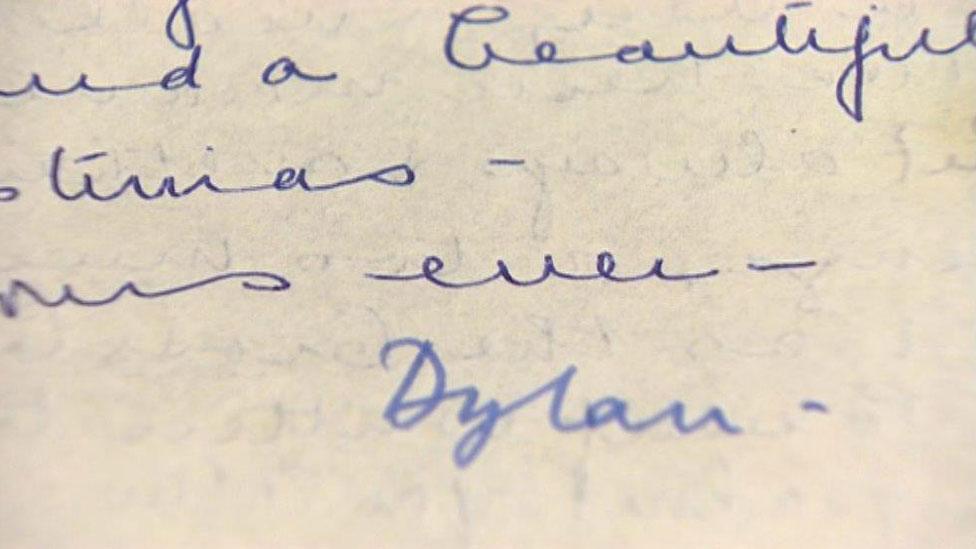 and a beautiful
stmas -
yours ever -
Dylan -